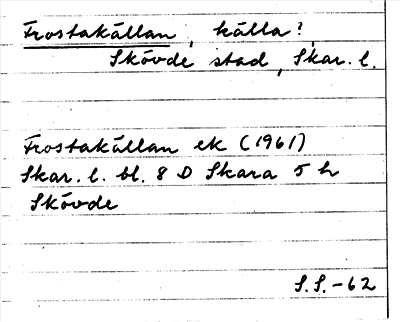 Frostakällan, källa?,
Skövde stad, Skar. l.
Frostakällan ek (1961)
Skar. l. bl. 8 D Skara 5 h
Skövde
S.S.-62